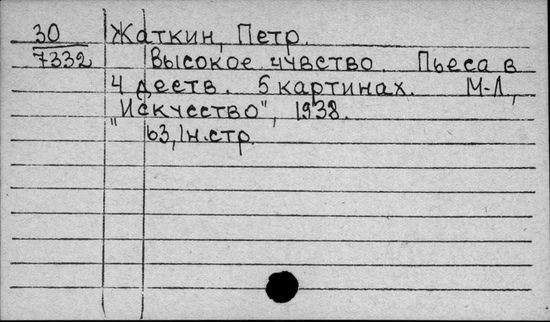 30 Жаткин, Петр.
7332 Высокое чувство. Пьеса в
4 деств. 5 картинах. М-Л,
"Искусство", 1938.
63, 1н.стр.